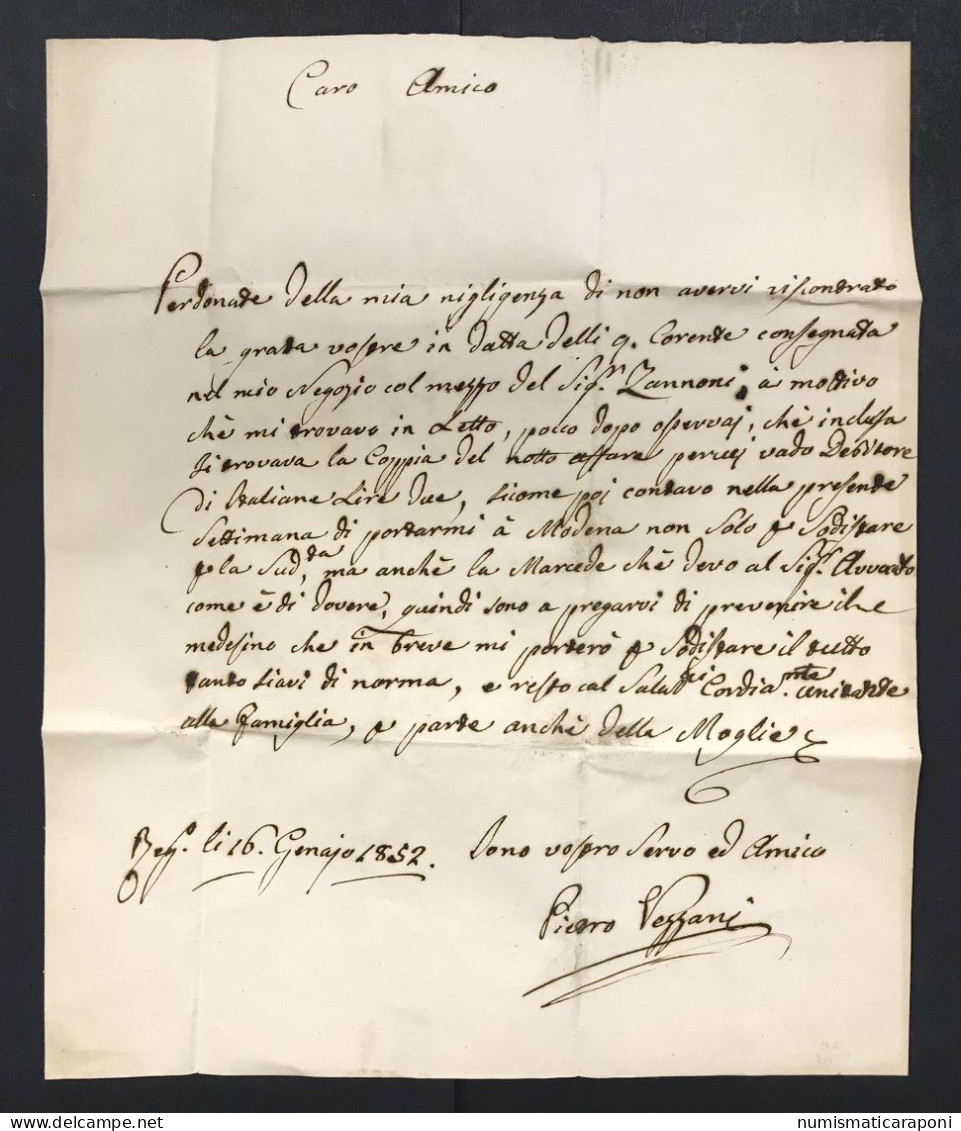 Caro Amico
Perdonate della mia nigligenza di non avervi riscontrato
la grata vostre in datta delli 9. Corente consegnata
nel mio Negozio col mezzo del Sigr. Zannoni, à mottivo
chè mi trovavo in Letto, poco dopo osservai, chè inclusa
si trovava la Coppia del notto affare percui vado Debitore
di Italiane Lire due, sicome poi contavo nella presente
Settimana di portarmi à Modena non solo p Sodisfare
p la Sud.ta, ma anchè la Marcede chè devo al Sigr. Avvocato
come è di dovere, quindi sono a pregarvi di prevenire il
medesino che in breve mi porterò p Sodisfare il tutto
tanto siavi di norma, e resto col Salutti Cordia.mte unitante
alla Famiglia, p parte anchè della Moglie
Regº. li 16. Genajo 1852. Sono vostro Servo ed Amico
Pietro Vezzani
numismaticaraponi
delcampe.net